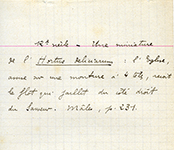 12e siècle - ibre miniature
de l'Hortus deliciarum : l'Eglise,
assise sur une monture à 4 têtes, reçoit
le flot qui jaillit du côté droit
du Sauveur. Mâle, p. 231.